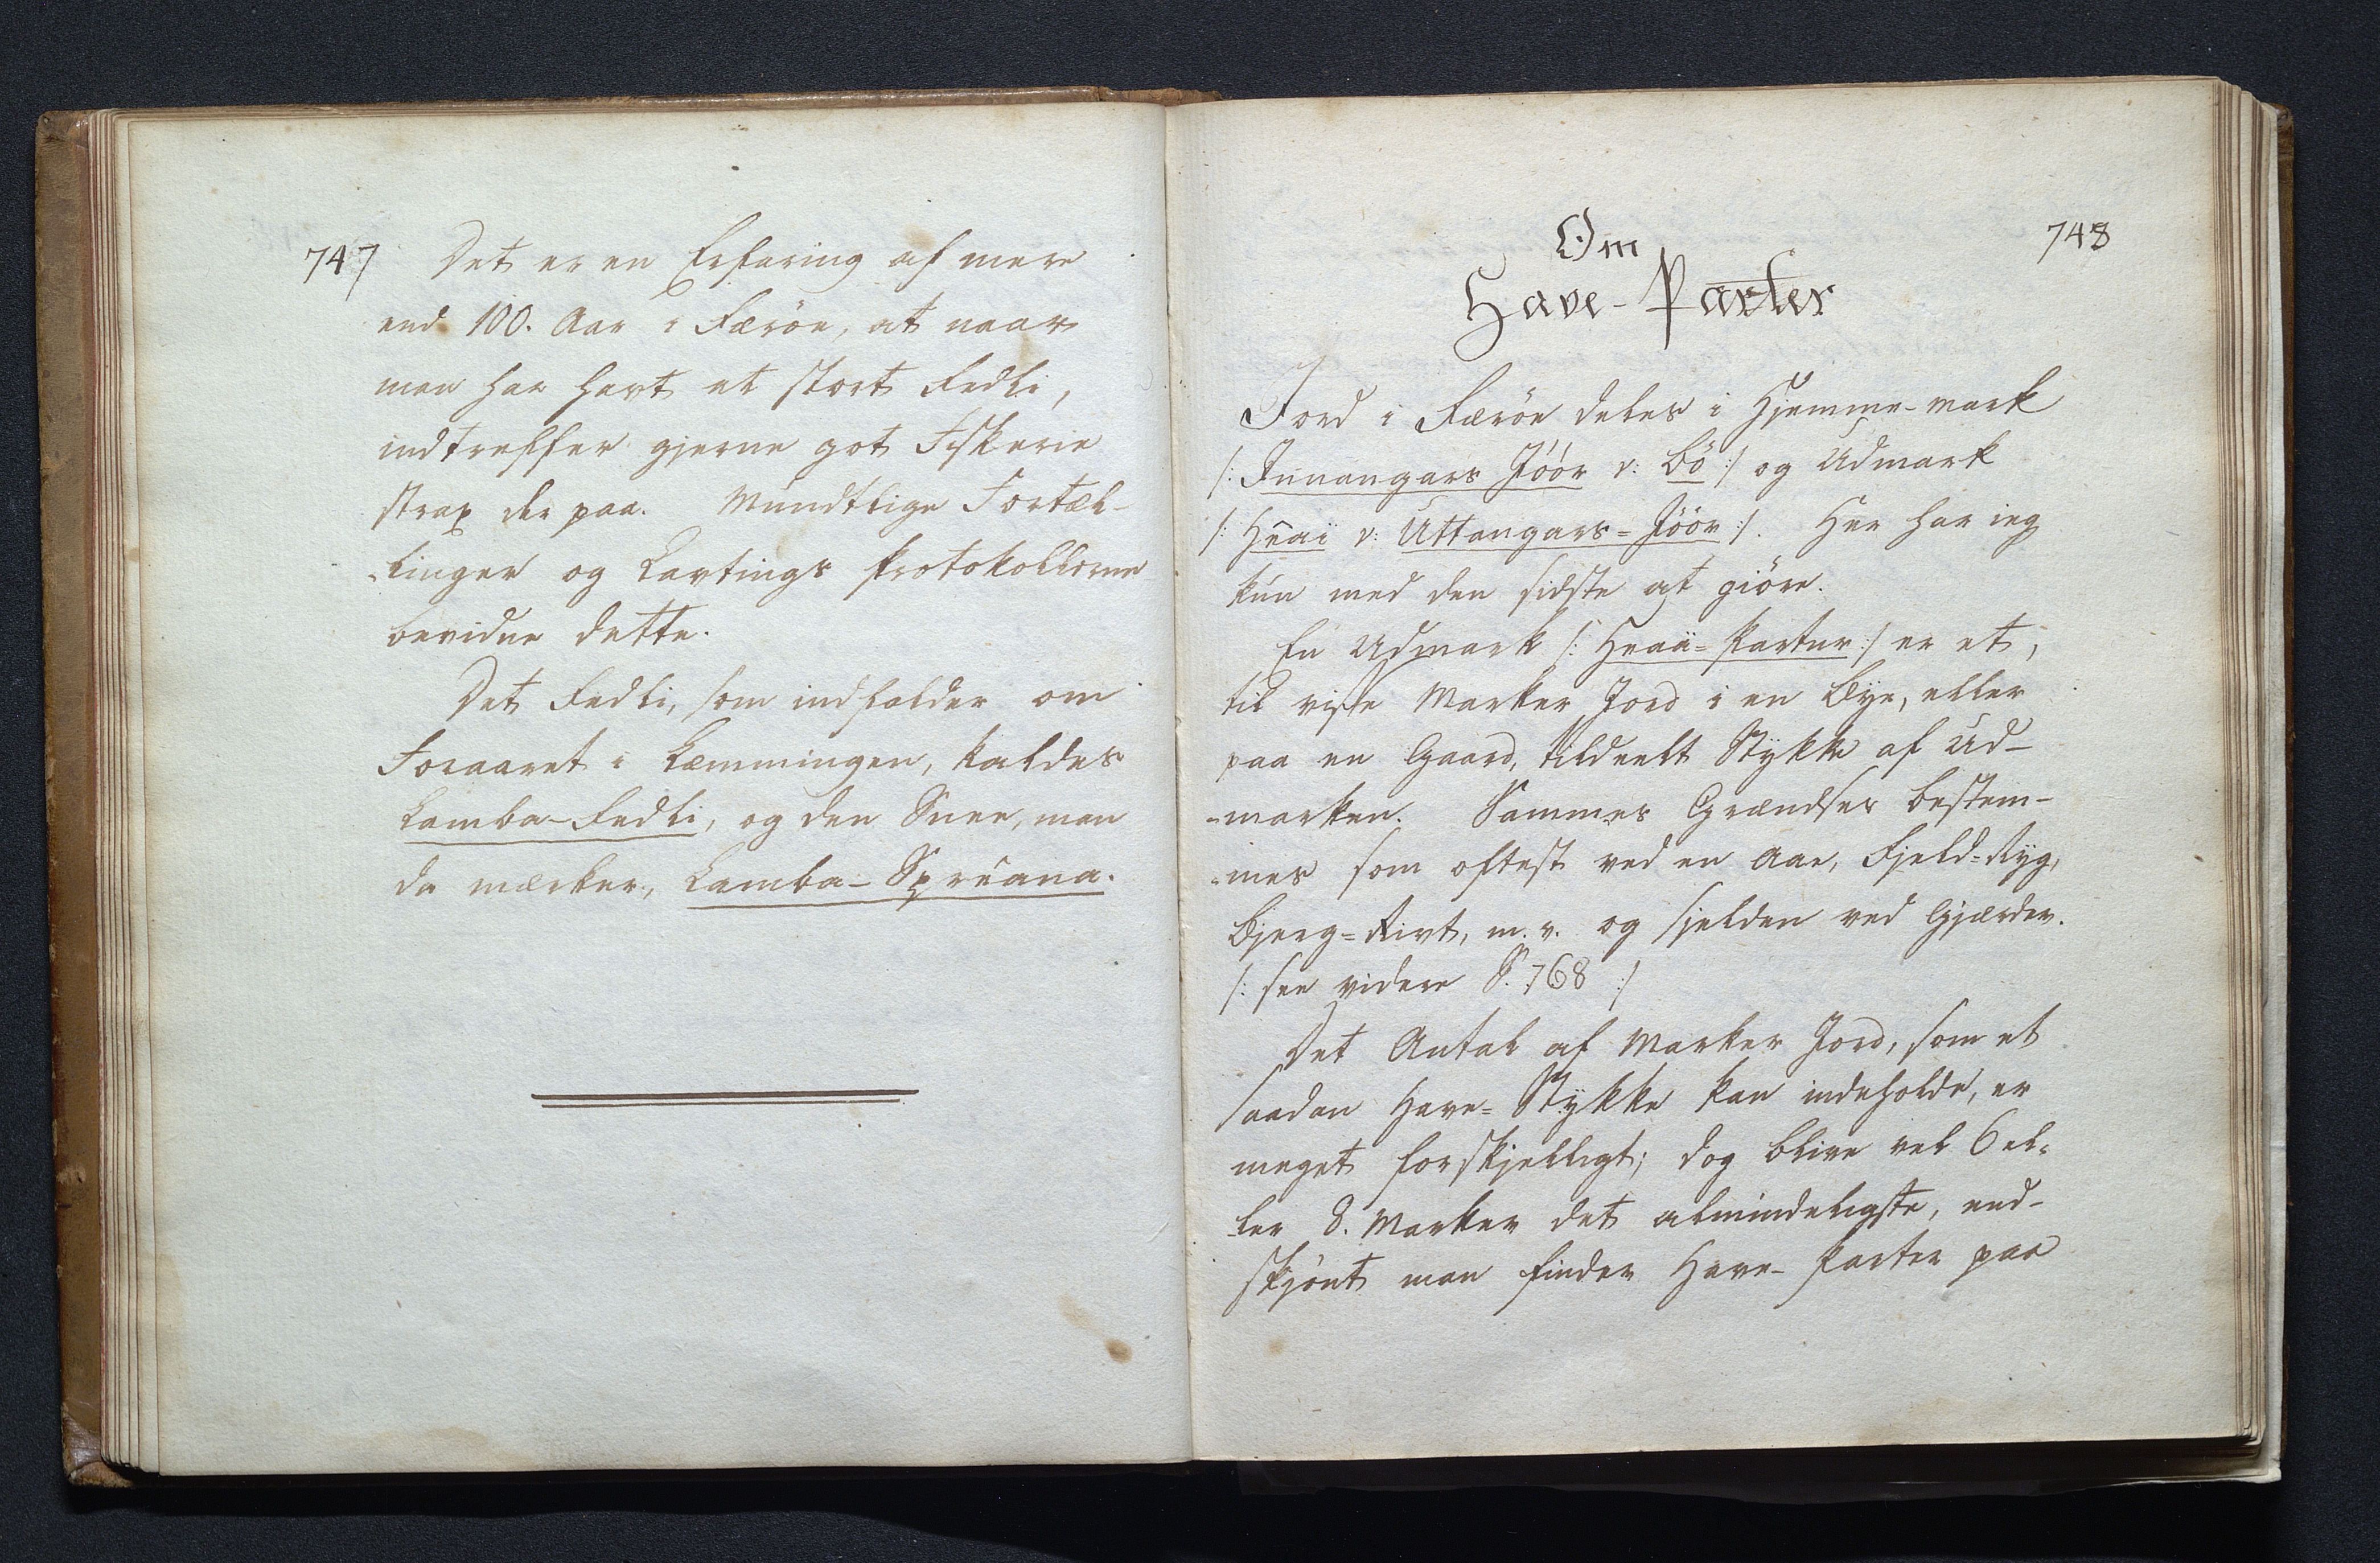 747
Det er en Erfaring af mere
end 100. Aar i Færöe, at naar
man har havt et stort Fedli,
indtreffer gjerne got Fiskerie
strax der paa. Mundtlige Fortæl-
-linger og Lavtings Protokollerne
bevidne dette.
Det Fedli, som indfalder om
Foraaret i Læmmingen, kaldes
Lamba-Fedli, og den Snee, man
da mærker, Lamba-Spréana.
748
Om
Have-Parter
Jord i Færöe deles i Hjemme-mark
/: Innangars Jóór v: Bö :/ og Udmark
/: Heaï v: Uttangars=Jóór :/. Her har ieg
kun med den sidste at giöre.
En Udmark /: Heaii=Partur :/ er et,
til visse Marker Jord i en Bye, eller
paa en Gaard, tildeelt Stykke af Ud-
-marken. Sammes Grændser bestem-
-mes som oftest ved en Aae, Fjeld=Ryg,
Bjerg=Rivt, m. v. og sjelden ved Gjærder.
/: see videre S. 768 :/
Det Antal af Marker Jord, som et
saadan Have=Stykke kan indeholde, er
meget forskjelligt; dog blive vel 6 el-
-ler 8. Marker det almindeligste, end-
skjönt man finder Have-Parter paa